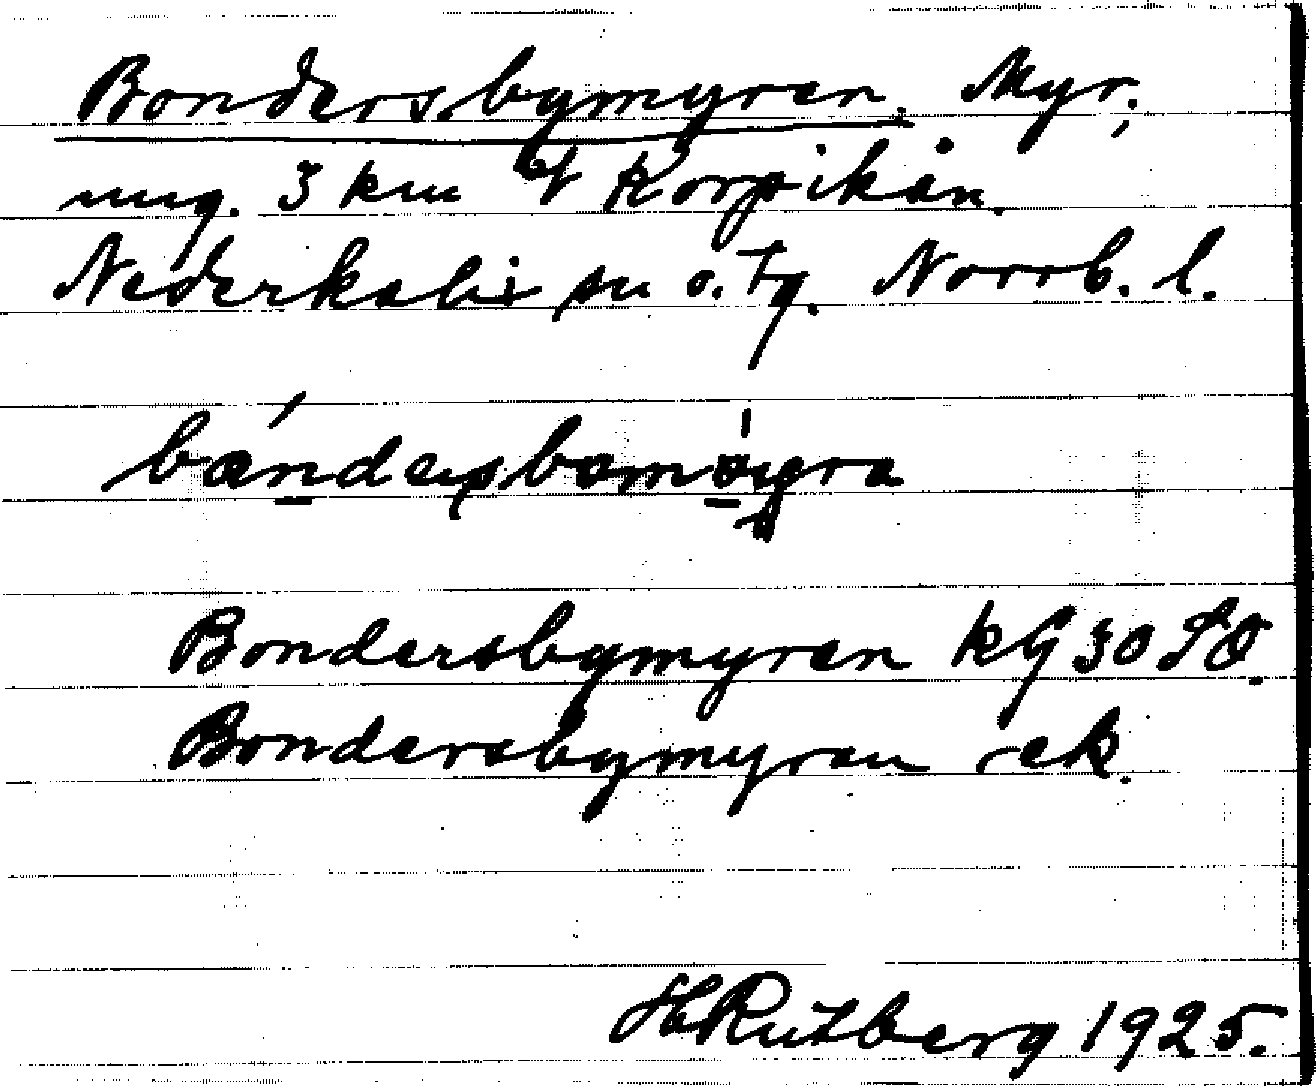 Bondersbymyren. Myr,
ung. 3 km V Korpikån.
Nederkalix sn o. tg. Norrb. l.
Bondersbymyren kG 30 SO.
Bondersbymyren ek.
HRutberg 1925.